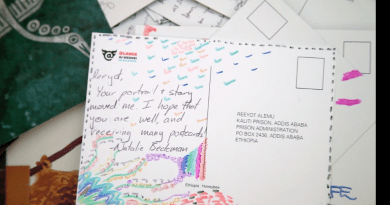 Reeyot,
Your portrait + story
moved me. I hope that
you are well, and
receiving many postcards!
-Natalie Beckman
REEYOT ALEMU
KALITI PRISON, ADDIS ABABA
PRISON ADMINISTRATION
PO BOX 2436, ADDIS ABABA
ETHIOPIA